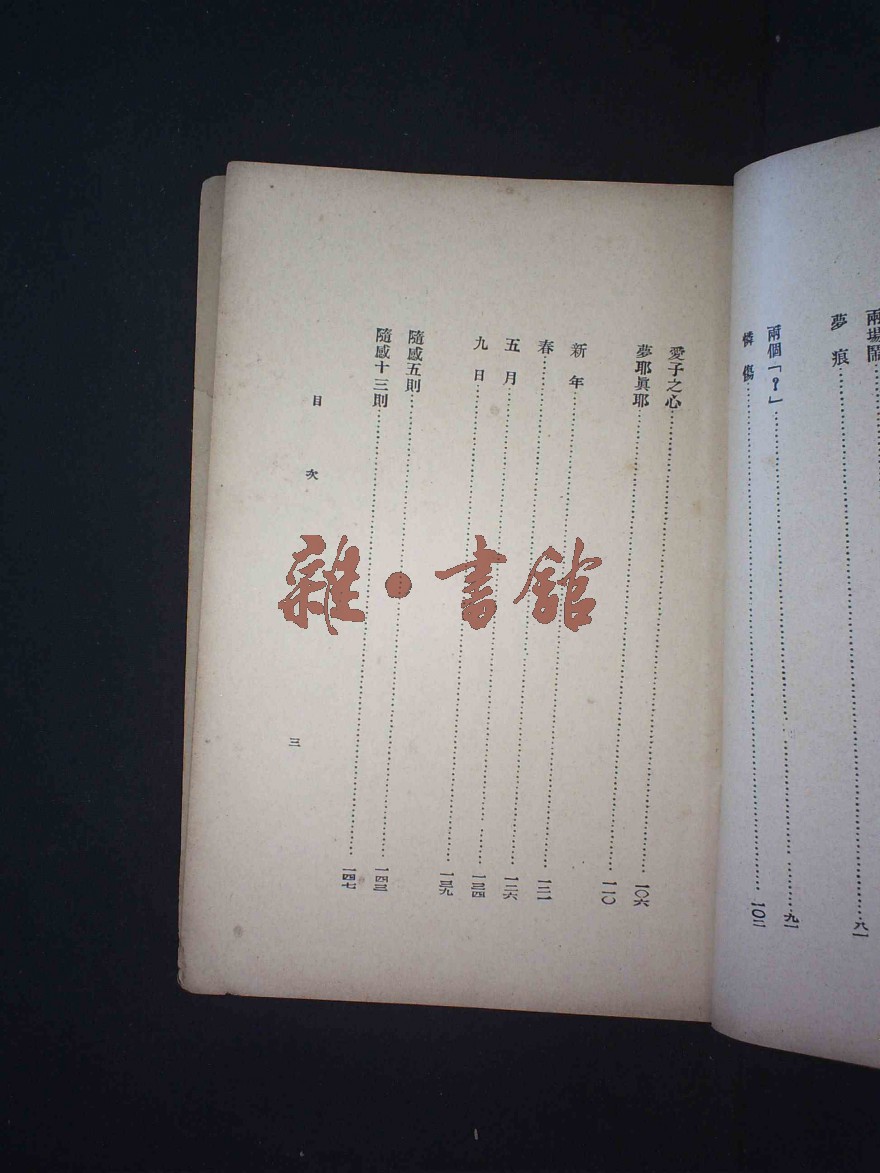 兩場鬧
夢痕……八一
兩個「？」……九一
憐傷……一〇二
愛子之心……一〇六
夢耶眞耶……一一〇
新年……一二一
春……一二六
五月……一三四
九日……一三九
隨感五則……一四三
隨感十三則……一四七
目次
三
雜·書館